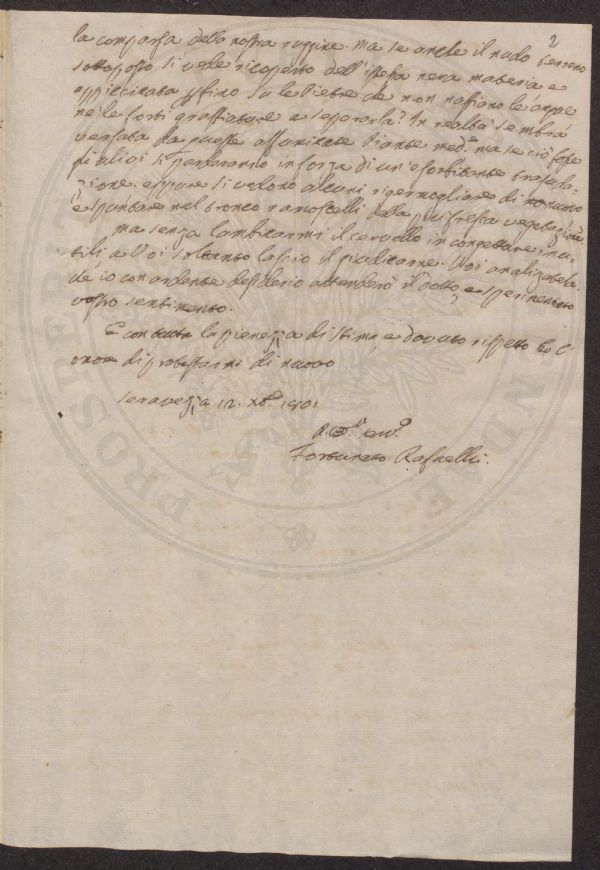 2
la comparsa della nostra ruggine. ma se anche il nudo terreno
sottoposto si vede ricoperto dell'istessa nera materia e
appiccicata sfino su le Pietre che non
ne le forti graffiature a separarla? In realtà sembra
versata da queste affumicate Piante med.e ma se ciò fosse
più ulivi si perderanno in forza di un'esorbitante trasuda-
zione. eppure si vedono alcuni rigermogliare di nuovo
e spuntare nel tronco ramoscelli della più fresca vegetazione
ma senza lambiccarmi il cervello in congetture inu-
tili a Voi soltanto lascio il giudicarne. Voi analizzatela
de io con ardente desiderio attenderò il dotto, e sperimentato
vostro sentimento.
E con tutta la pienezza di stima, e dovuto rispetto ho l'
onore di protestarmi di nuovo
Seravezza 12. Xb.e 1801
Fortunato Rafaelli.